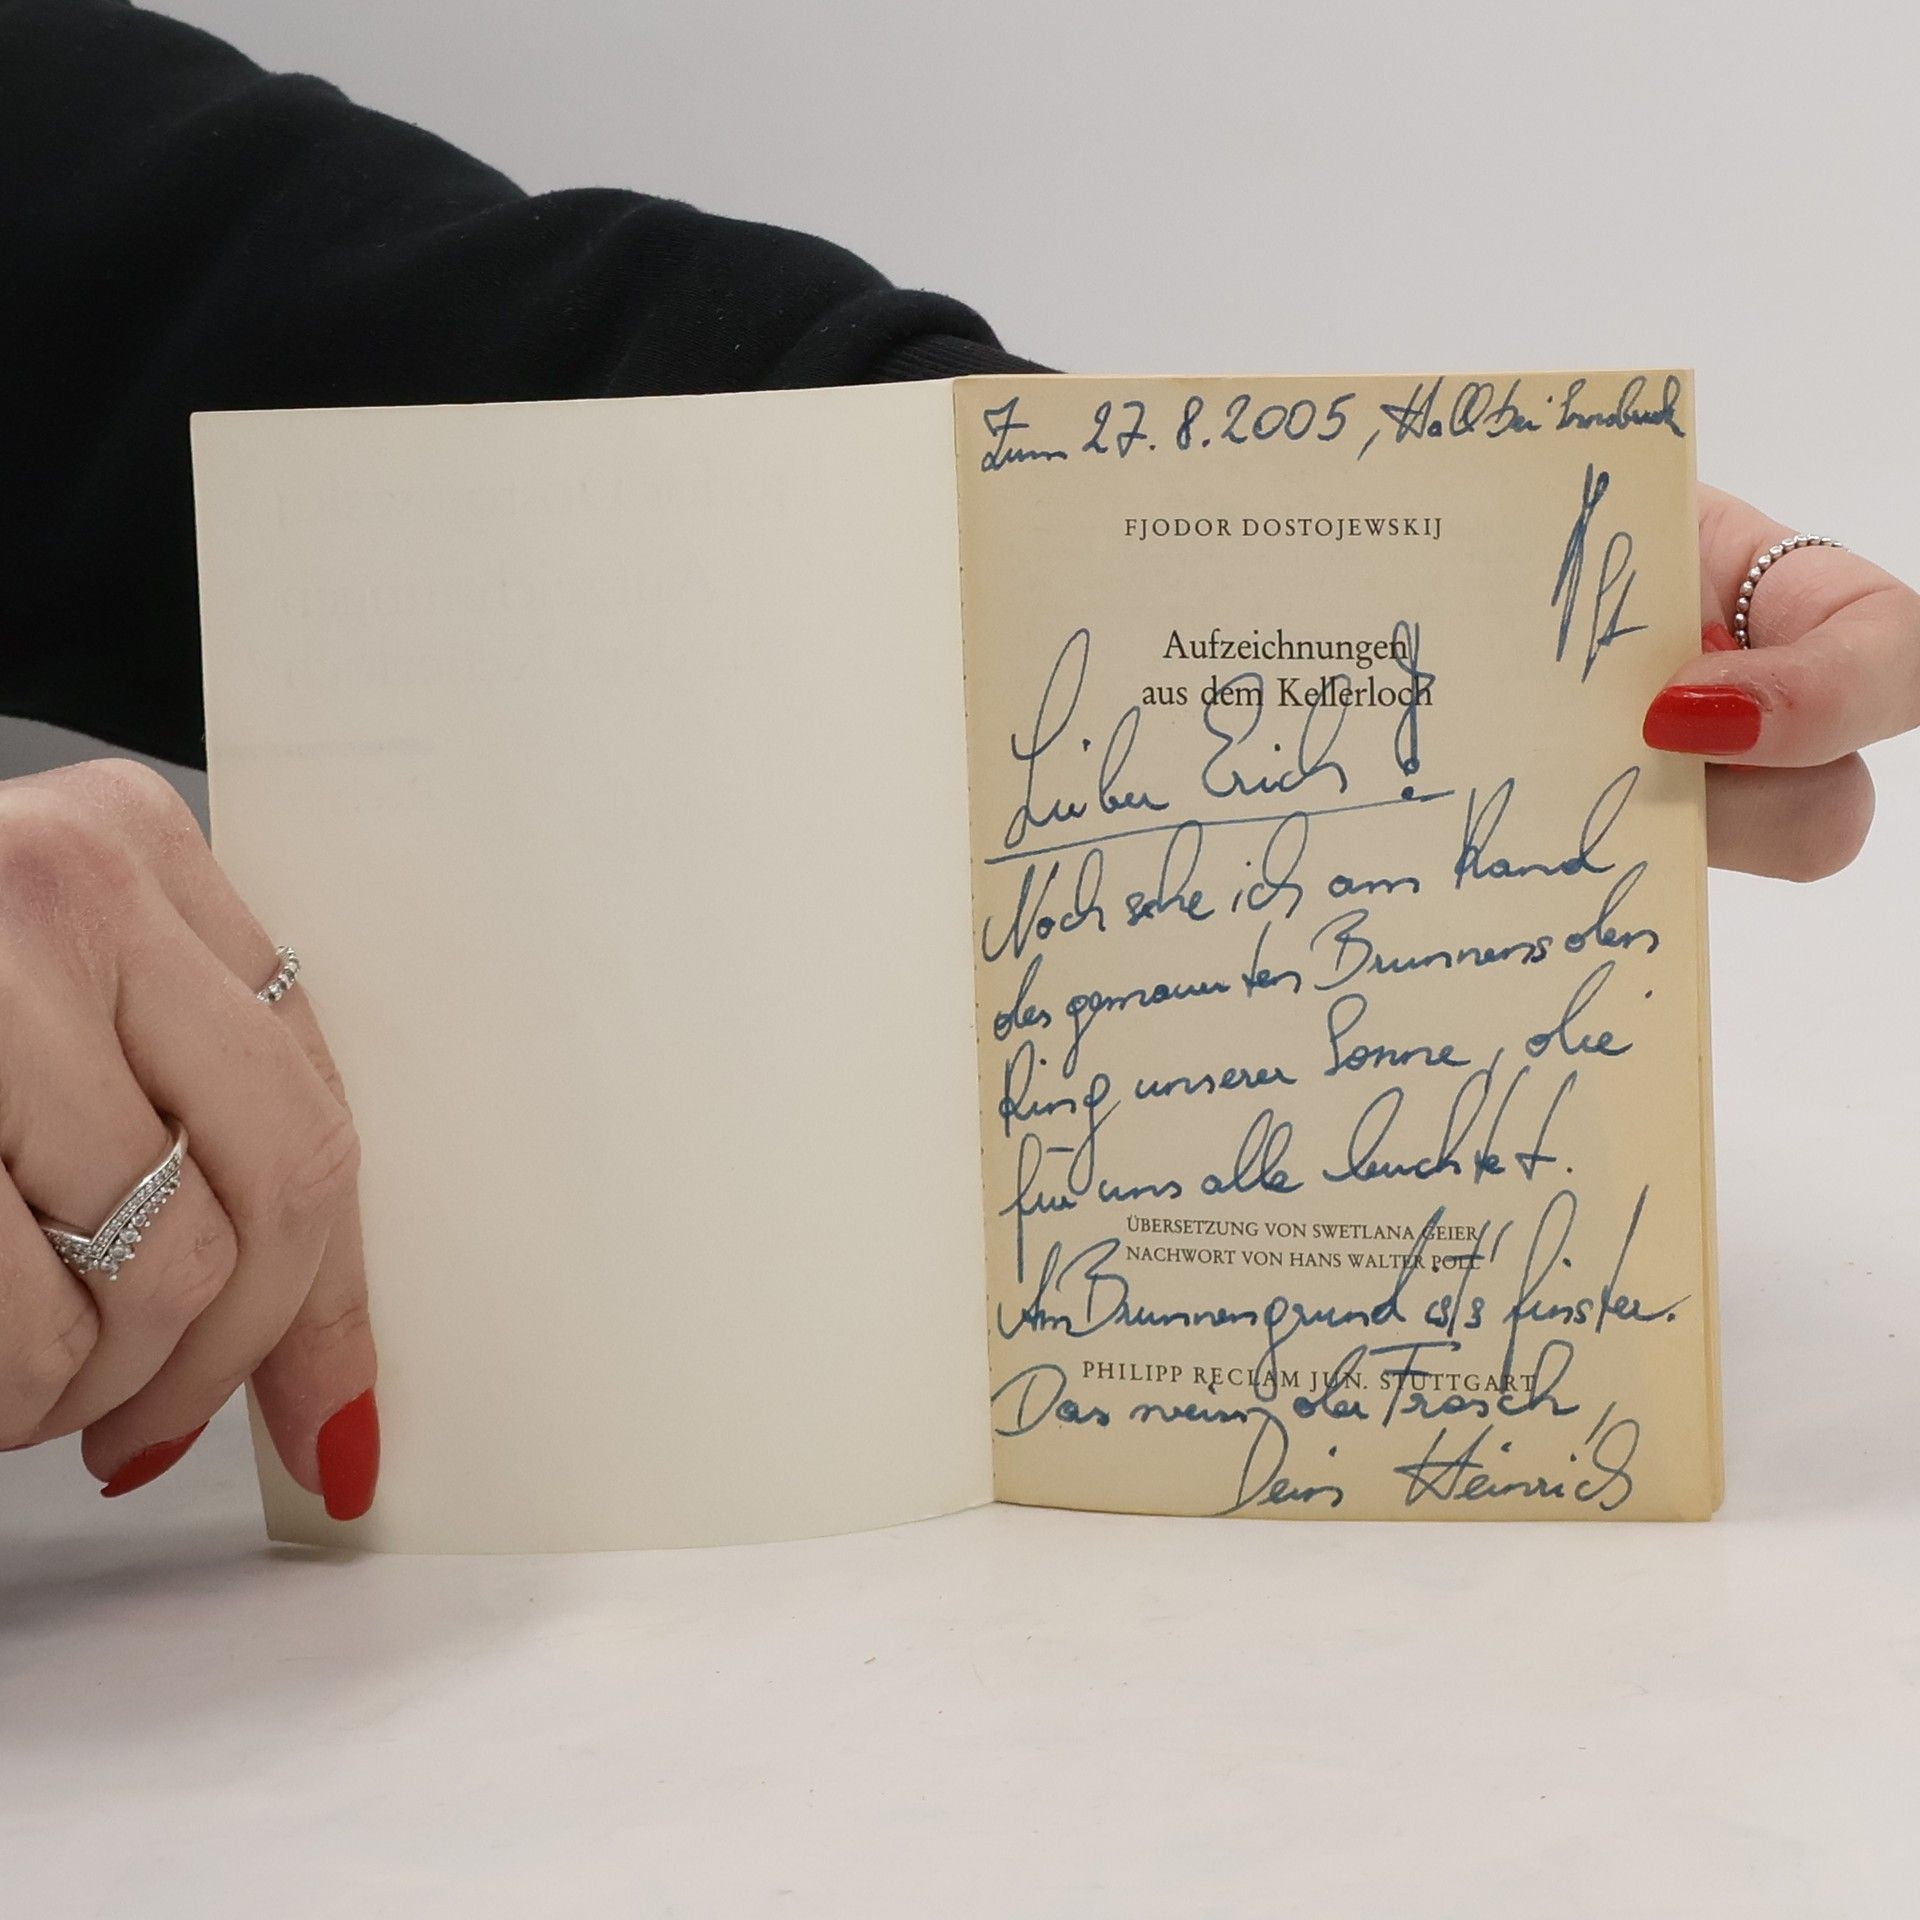 Zum 27.8.2005, Hall bei Innsbruck
FJODOR DOSTOJEWSKIJ
Aufzeichnungen
aus dem Kellerloch
Lieber Erich!
Noch sehe ich am Rand
des gemauerten Brunnens den
Ring unserer Sonne, die
für uns alle leuchtet.
ÜBERSETZUNG VON SWETLANA GEIER
NACHWORT VON HANS WALTER POLL
Am Brunnengrund ist's finster.
PHILIPP RECLAM JUN. STUTTGART
Das weiss der Frosch,
Dein Heinrich